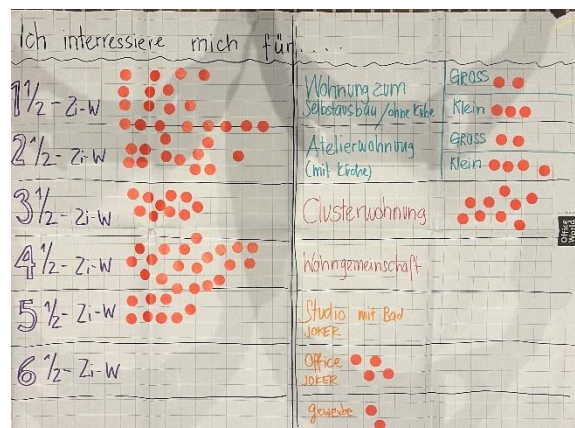 Ich interressiere mich für....
1 1/2 - Zi-W
2 1/2 - Zi-W
3 1/2 - Zi-W
4 1/2 - Zi-W
5 1/2 - Zi-W
6 1/2 - Zi-W
Wohnung zum
Selbstausbau/ohne Küche
GROSS
Klein
Atelierwohnung
(mit Küche)
GROSS
Klein
Clusterwohnung
Wohngemeinschaft
Studio mit Bad
JOKER
Office
JOKER
gewerbe
Office
World